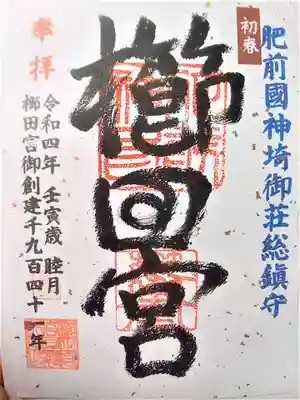 初春
肥前國神埼御荘総鎮守
櫛田宮
奉拝
令和四年 壬寅歳 睦月
櫛田宮御創建千九百四十一年